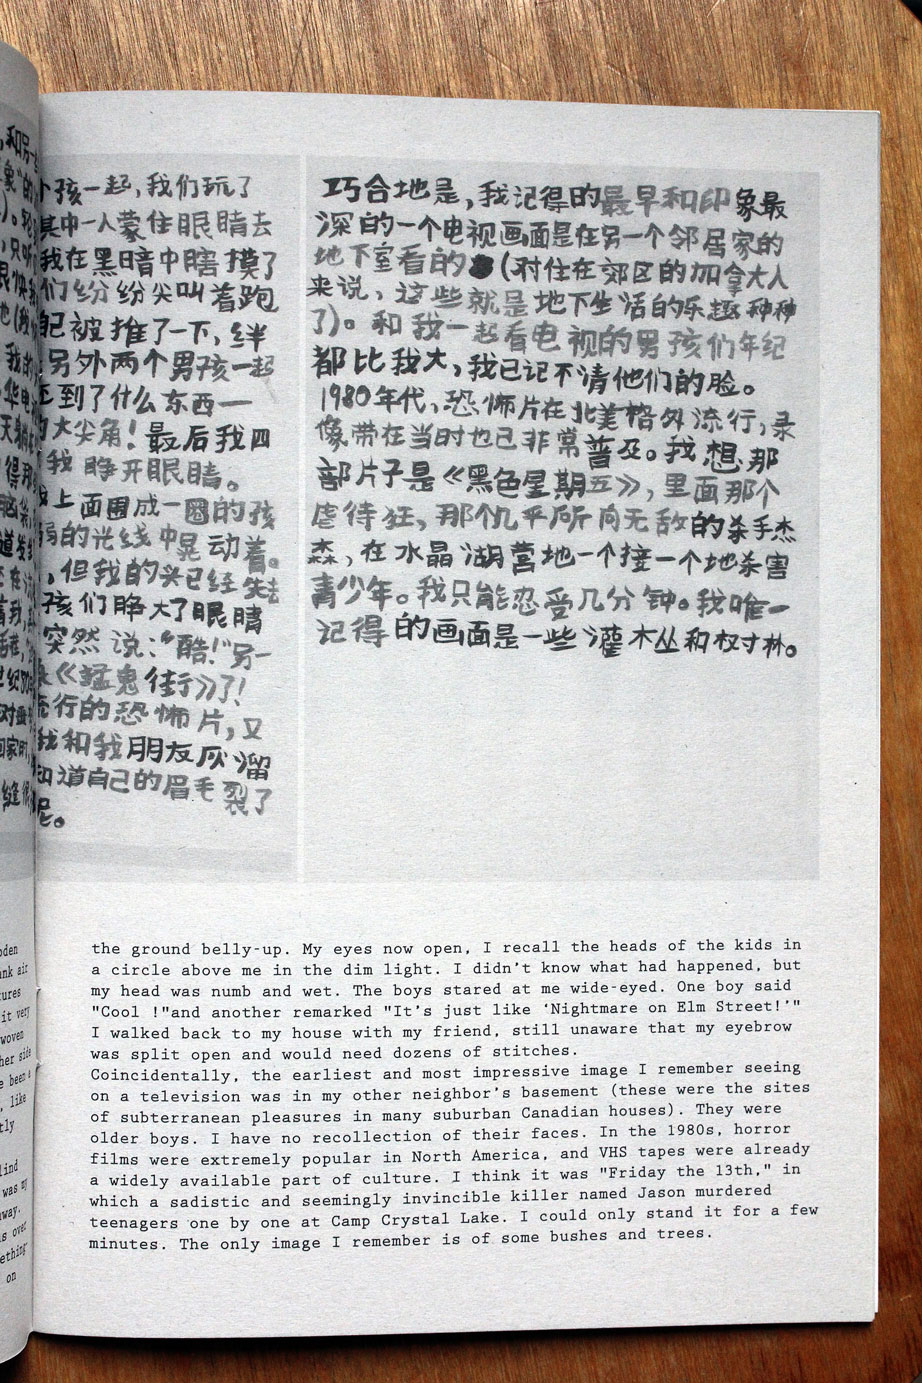 个孩一起，我们玩了
其中一人蒙住眼睛去
我在黑暗中瞎摸了
们纷纷尖叫着跑
自己被推了一下，绊
另外两个男孩一起
到了什么东西一
大尖角！最后我四
我睁开眼睛。
我上面围成一圈的孩
弱的光线中晃动着。
，但我的头已经失去
孩们睁大了眼睛
突然说："酷！"另一
《猛鬼街》了！
流行的恐怖片，又
我和我朋友灰溜
知道自己的眉毛裂了
呢。
巧合地是，我记得的最早和印象最
深的一个电视画面是在另一个邻居家的
地下室看的（对住在郊区的加拿大人
来说，这些就是地下生活的乐趣种种
了）。和我一起看电视的男孩们年纪
都比我大，我已记不清他们的脸。
1980年代，恐怖片在北美格外流行，录
像带在当时也已非常普及。我想，那
部片子是《黑色星期五》，里面那个
虐待狂，那个几乎所向无敌的杀手杰
森，在水晶湖营地一个接一个地杀害
青少年。我只能忍受几分钟。我唯一
记得的画面是一些灌木丛和树林。
the ground belly-up. My eyes now open, I recall the heads of the kids in
a circle above me in the dim light. I didn't know what had happened, but
my head was numb and wet. The boys stared at me wide-eyed. One boy said
"Cool !"and another remarked "It's just like ‘Nightmare on Elm Street!’"
I walked back to my house with my friend, still unaware that my eyebrow
was split open and would need dozens of stitches.
Coincidentally, the earliest and most impressive image I remember seeing
on a television was in my other neighbor's basement (these were the sites
of subterranean pleasures in many suburban Canadian houses). They were
older boys. I have no recollection of their faces. In the 1980s, horror
films were extremely popular in North America, and VHS tapes were already
a widely available part of culture. I think it was "Friday the 13th," in
which a sadistic and seemingly invincible killer named Jason murdered
teenagers one by one at Camp Crystal Lake. I could only stand it for a few
minutes. The only image I remember is of some bushes and trees.